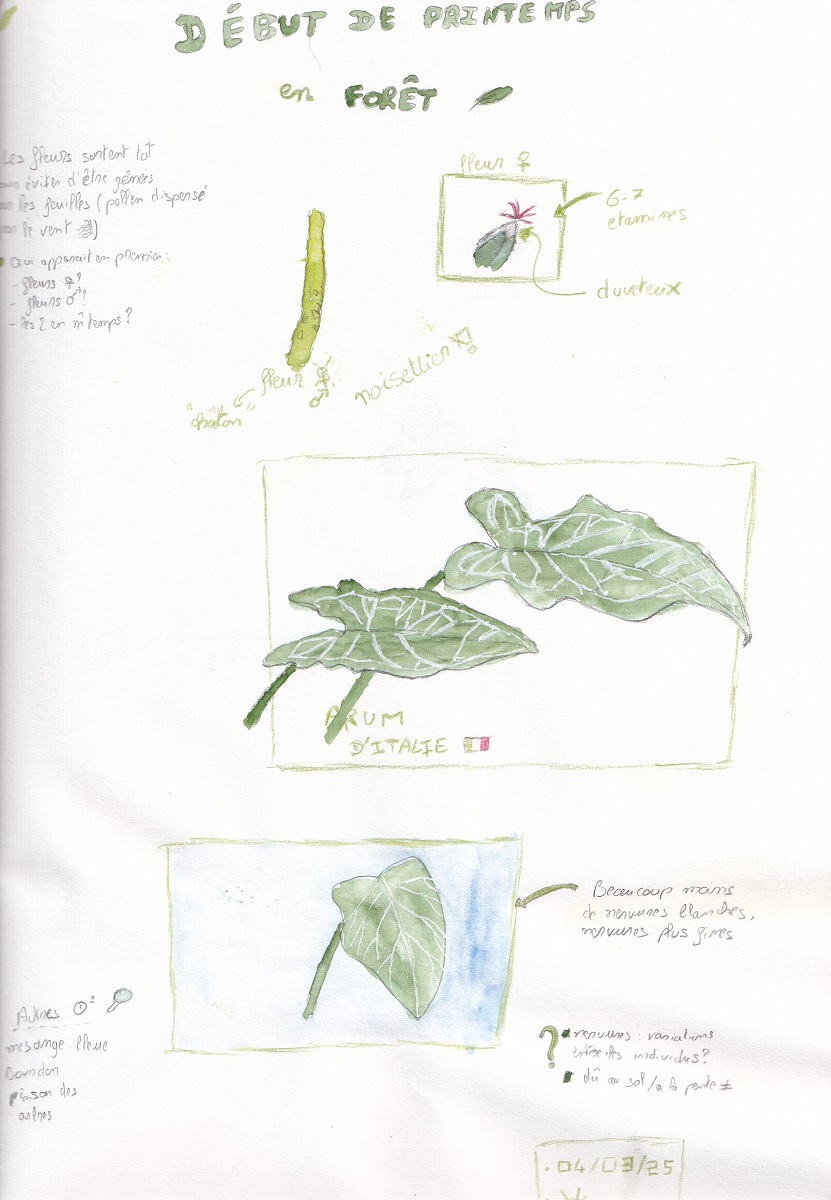 DÉBUT DE PRINTEMPS
en FORÊT
Les fleurs sortent tôt
éviter d'être gênées
les feuilles (pollen dispersé
le vent )
Qui apparait en premier :
- fleurs ♀?
- fleurs ♂?
- les 2 en m̂ temps?
fleur ♀
6-7
étamines
duveteux
fleur ♂
"chaton"
noisetier
ARUM
D'ITALIE
Beaucoup moins
de nervures blanches,
nervures plus fines
Autres
mésange bleue
Bourdon
pinson des
arbres
? nervures : variations
entre les individus?
dû au sol / à la pente ≠
04/03/25